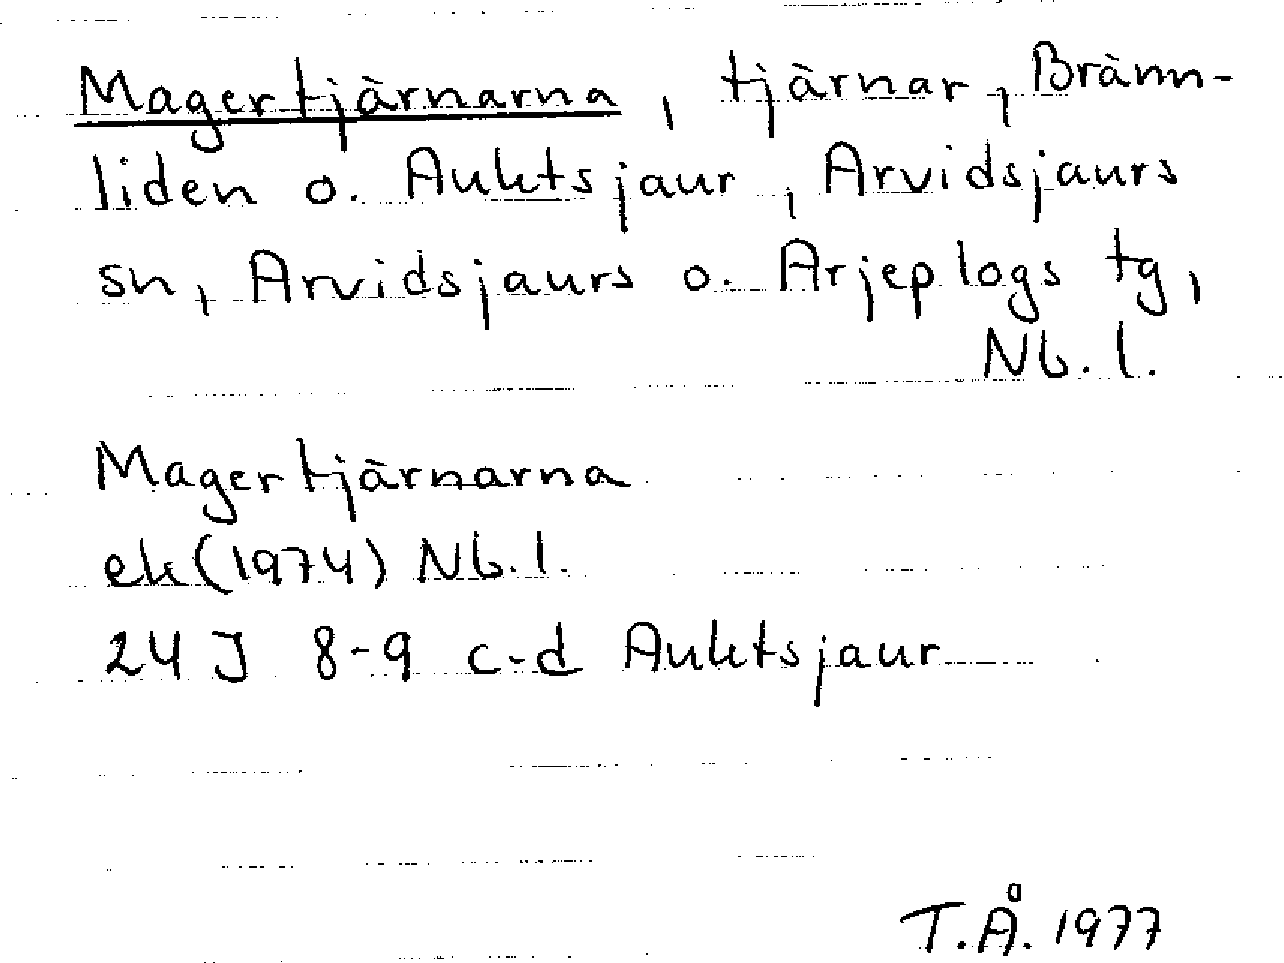 Magertjärnarna, tjärnar, Bränn-
liden o. Auktsjaur, Arvidsjaurs
sn, Arvidsjaurs o. Arjeplogs tg,
Nb.l.
Magertjärnarna
ek(1974) Nb.l.
24 J 8-9 c-d Auktsjaur
T.Å. 1977